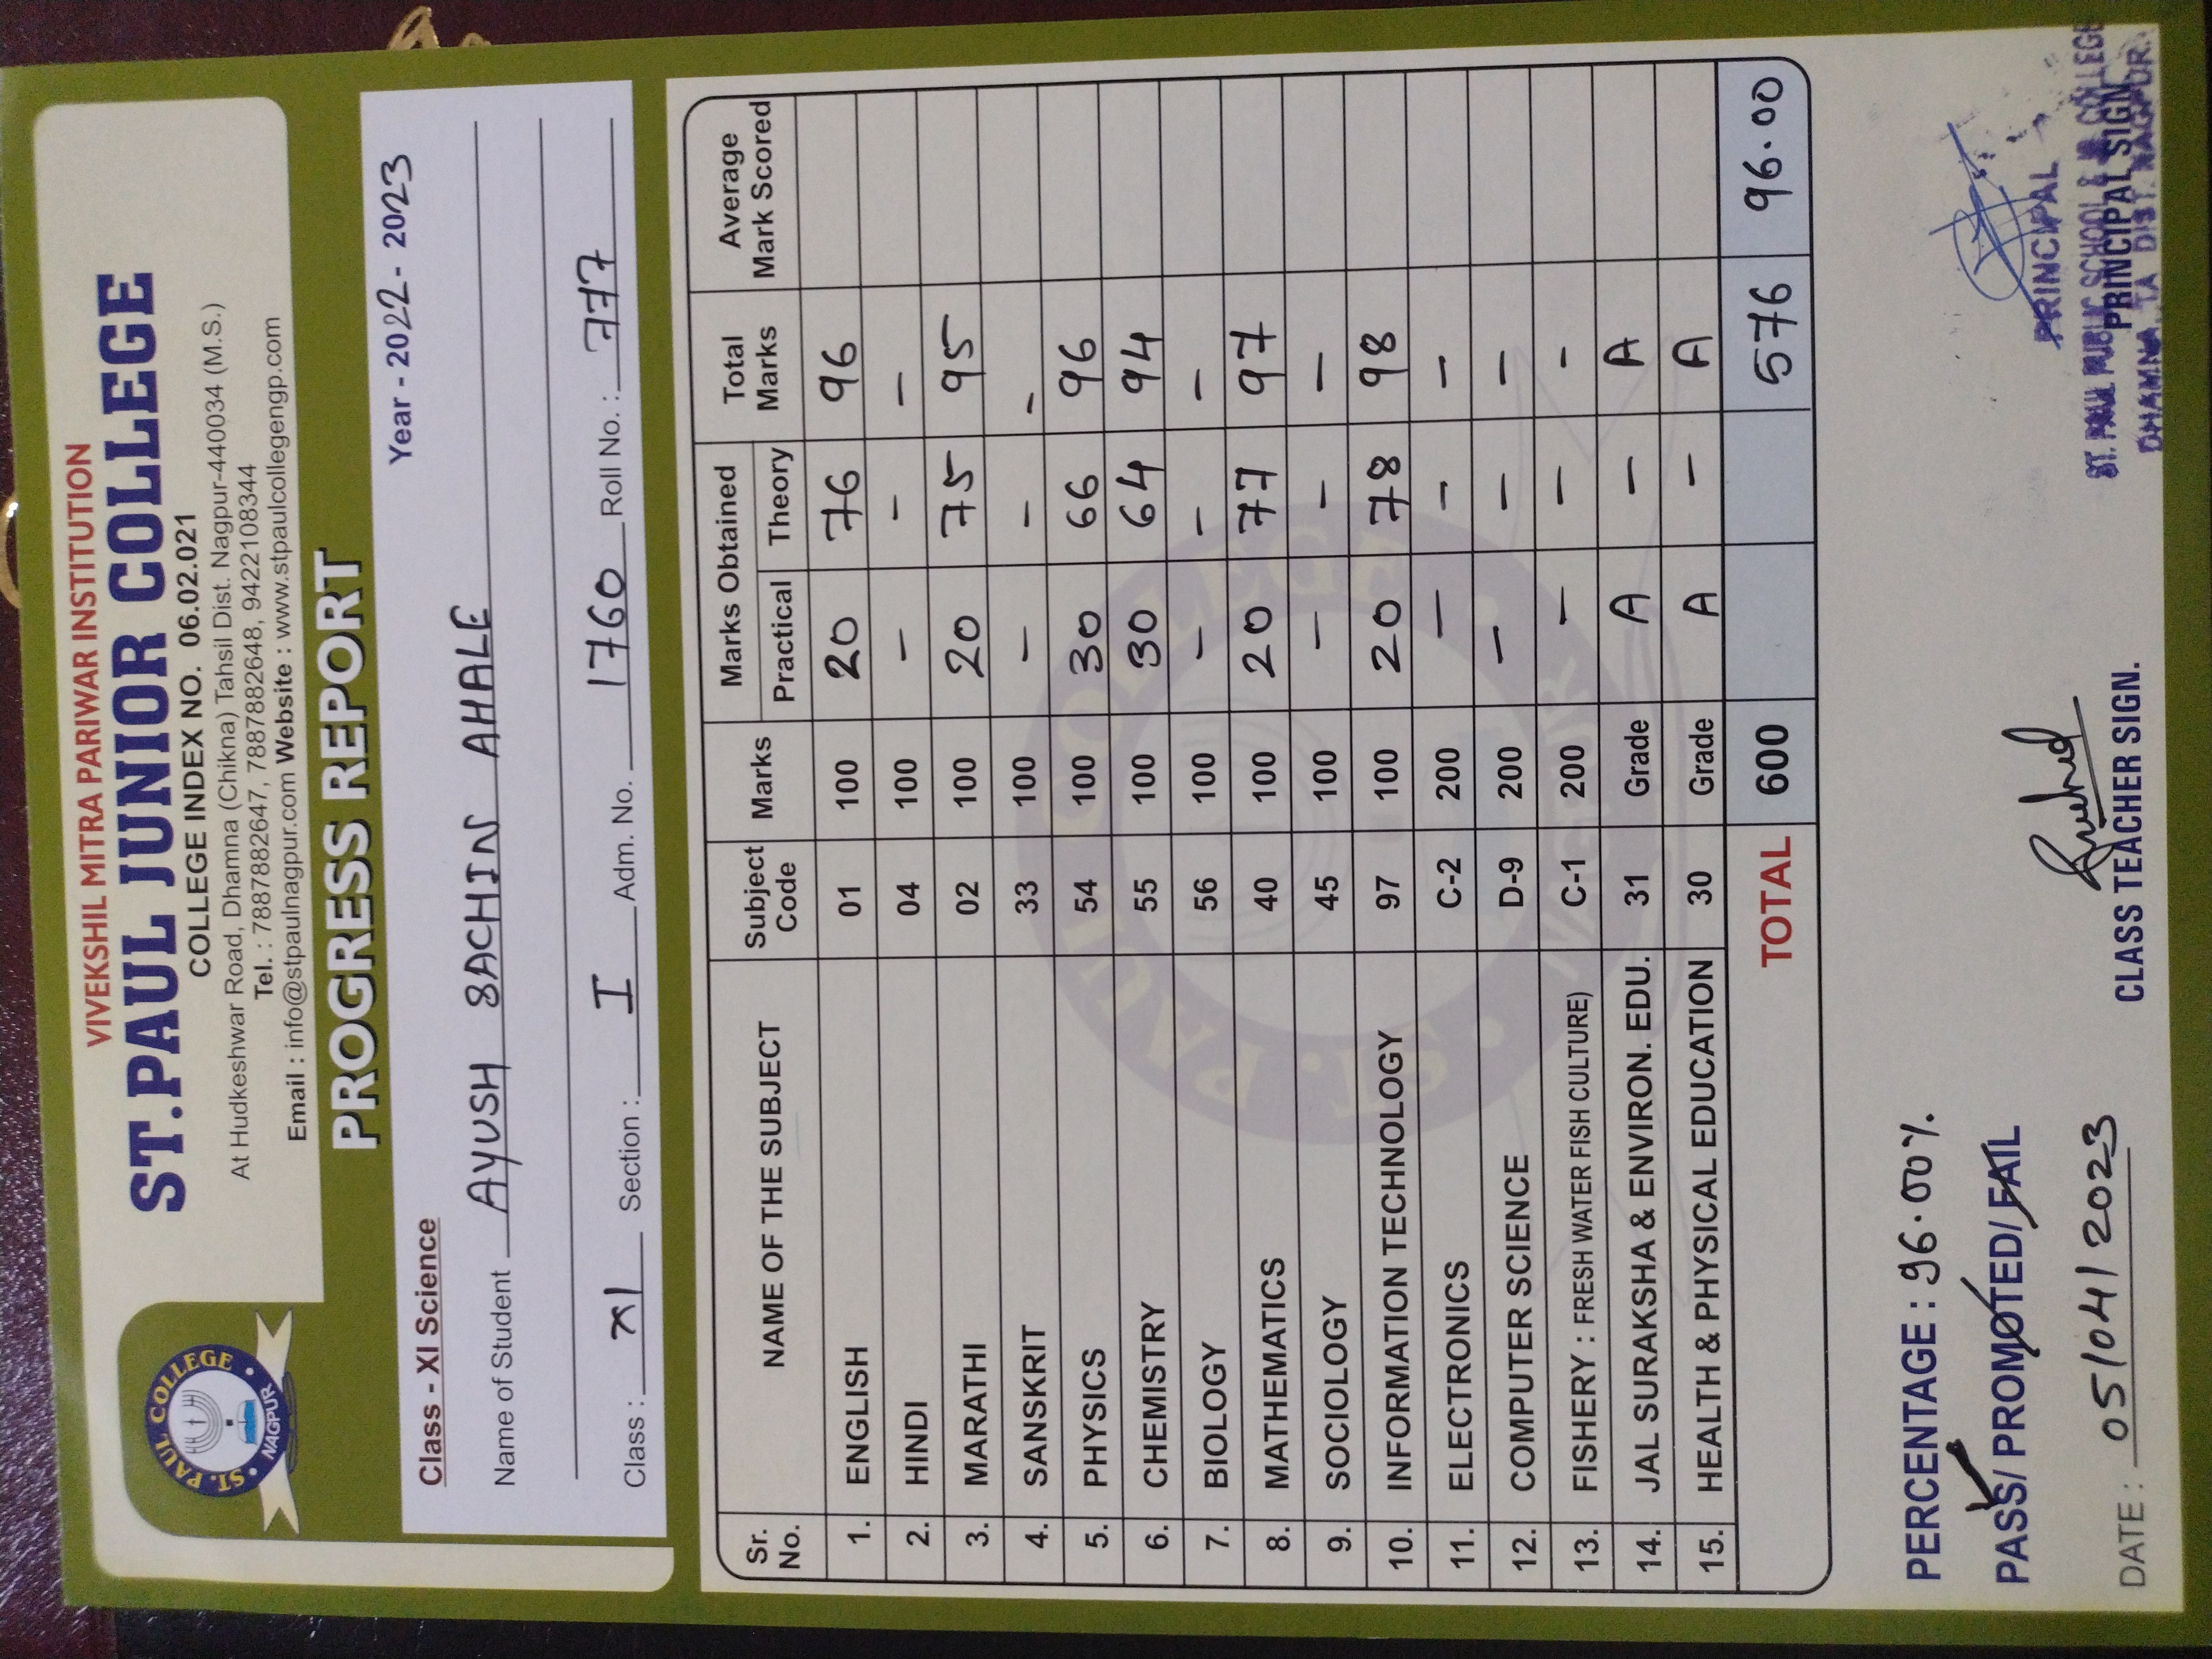 VIVEKSHIL MITRA PARIWAR INSTITUTION
ST.PAUL JUNIOR COLLEGE
COLLEGE INDEX NO. 06.02.021
At Hudkeshwar Road, Dhamna (Chikna) Tahsil Dist. Nagpur-440034 (M.S.)
Tel. : 7887882647, 7887882648, 9422108344
Email : info@stpaulnagpur.com Website : www.stpaulcollegengp.com
ST. PAUL COLLEGE • NAGPUR •
PROGRESS REPORT
Class - XI Science Year - 2022 - 2023
Name of Student AYUSH SACHIN AHALE
Class : XI Section : I Adm. No. 1760 Roll No. : 777
Sr. No. NAME OF THE SUBJECT Subject Code Marks Marks Obtained Practical Theory Total Marks Average Mark Scored
1. ENGLISH 01 100 20 76 96
2. HINDI 04 100 - - -
3. MARATHI 02 100 20 75 95
4. SANSKRIT 33 100 - - -
5. PHYSICS 54 100 30 66 96
6. CHEMISTRY 55 100 30 64 94
7. BIOLOGY 56 100 - - -
8. MATHEMATICS 40 100 20 77 97
9. SOCIOLOGY 45 100 - - -
10. INFORMATION TECHNOLOGY 97 100 20 78 98
11. ELECTRONICS C-2 200 - - -
12. COMPUTER SCIENCE D-9 200 - - -
13. FISHERY : FRESH WATER FISH CULTURE) C-1 200 - - -
14. JAL SURAKSHA & ENVIRON. EDU. 31 Grade A - A
15. HEALTH & PHYSICAL EDUCATION 30 Grade A - A
TOTAL 600 576 96.00
PERCENTAGE : 96.00%
PASS/ PROMOTED/ FAIL
PRINCIPAL
ST. PAUL PUBLIC SCHOOL & COLLEGE
DHAMNA, TA DIST. NAGPUR.
DATE : 05/04/2023 CLASS TEACHER SIGN. PRINCIPAL SIGN.